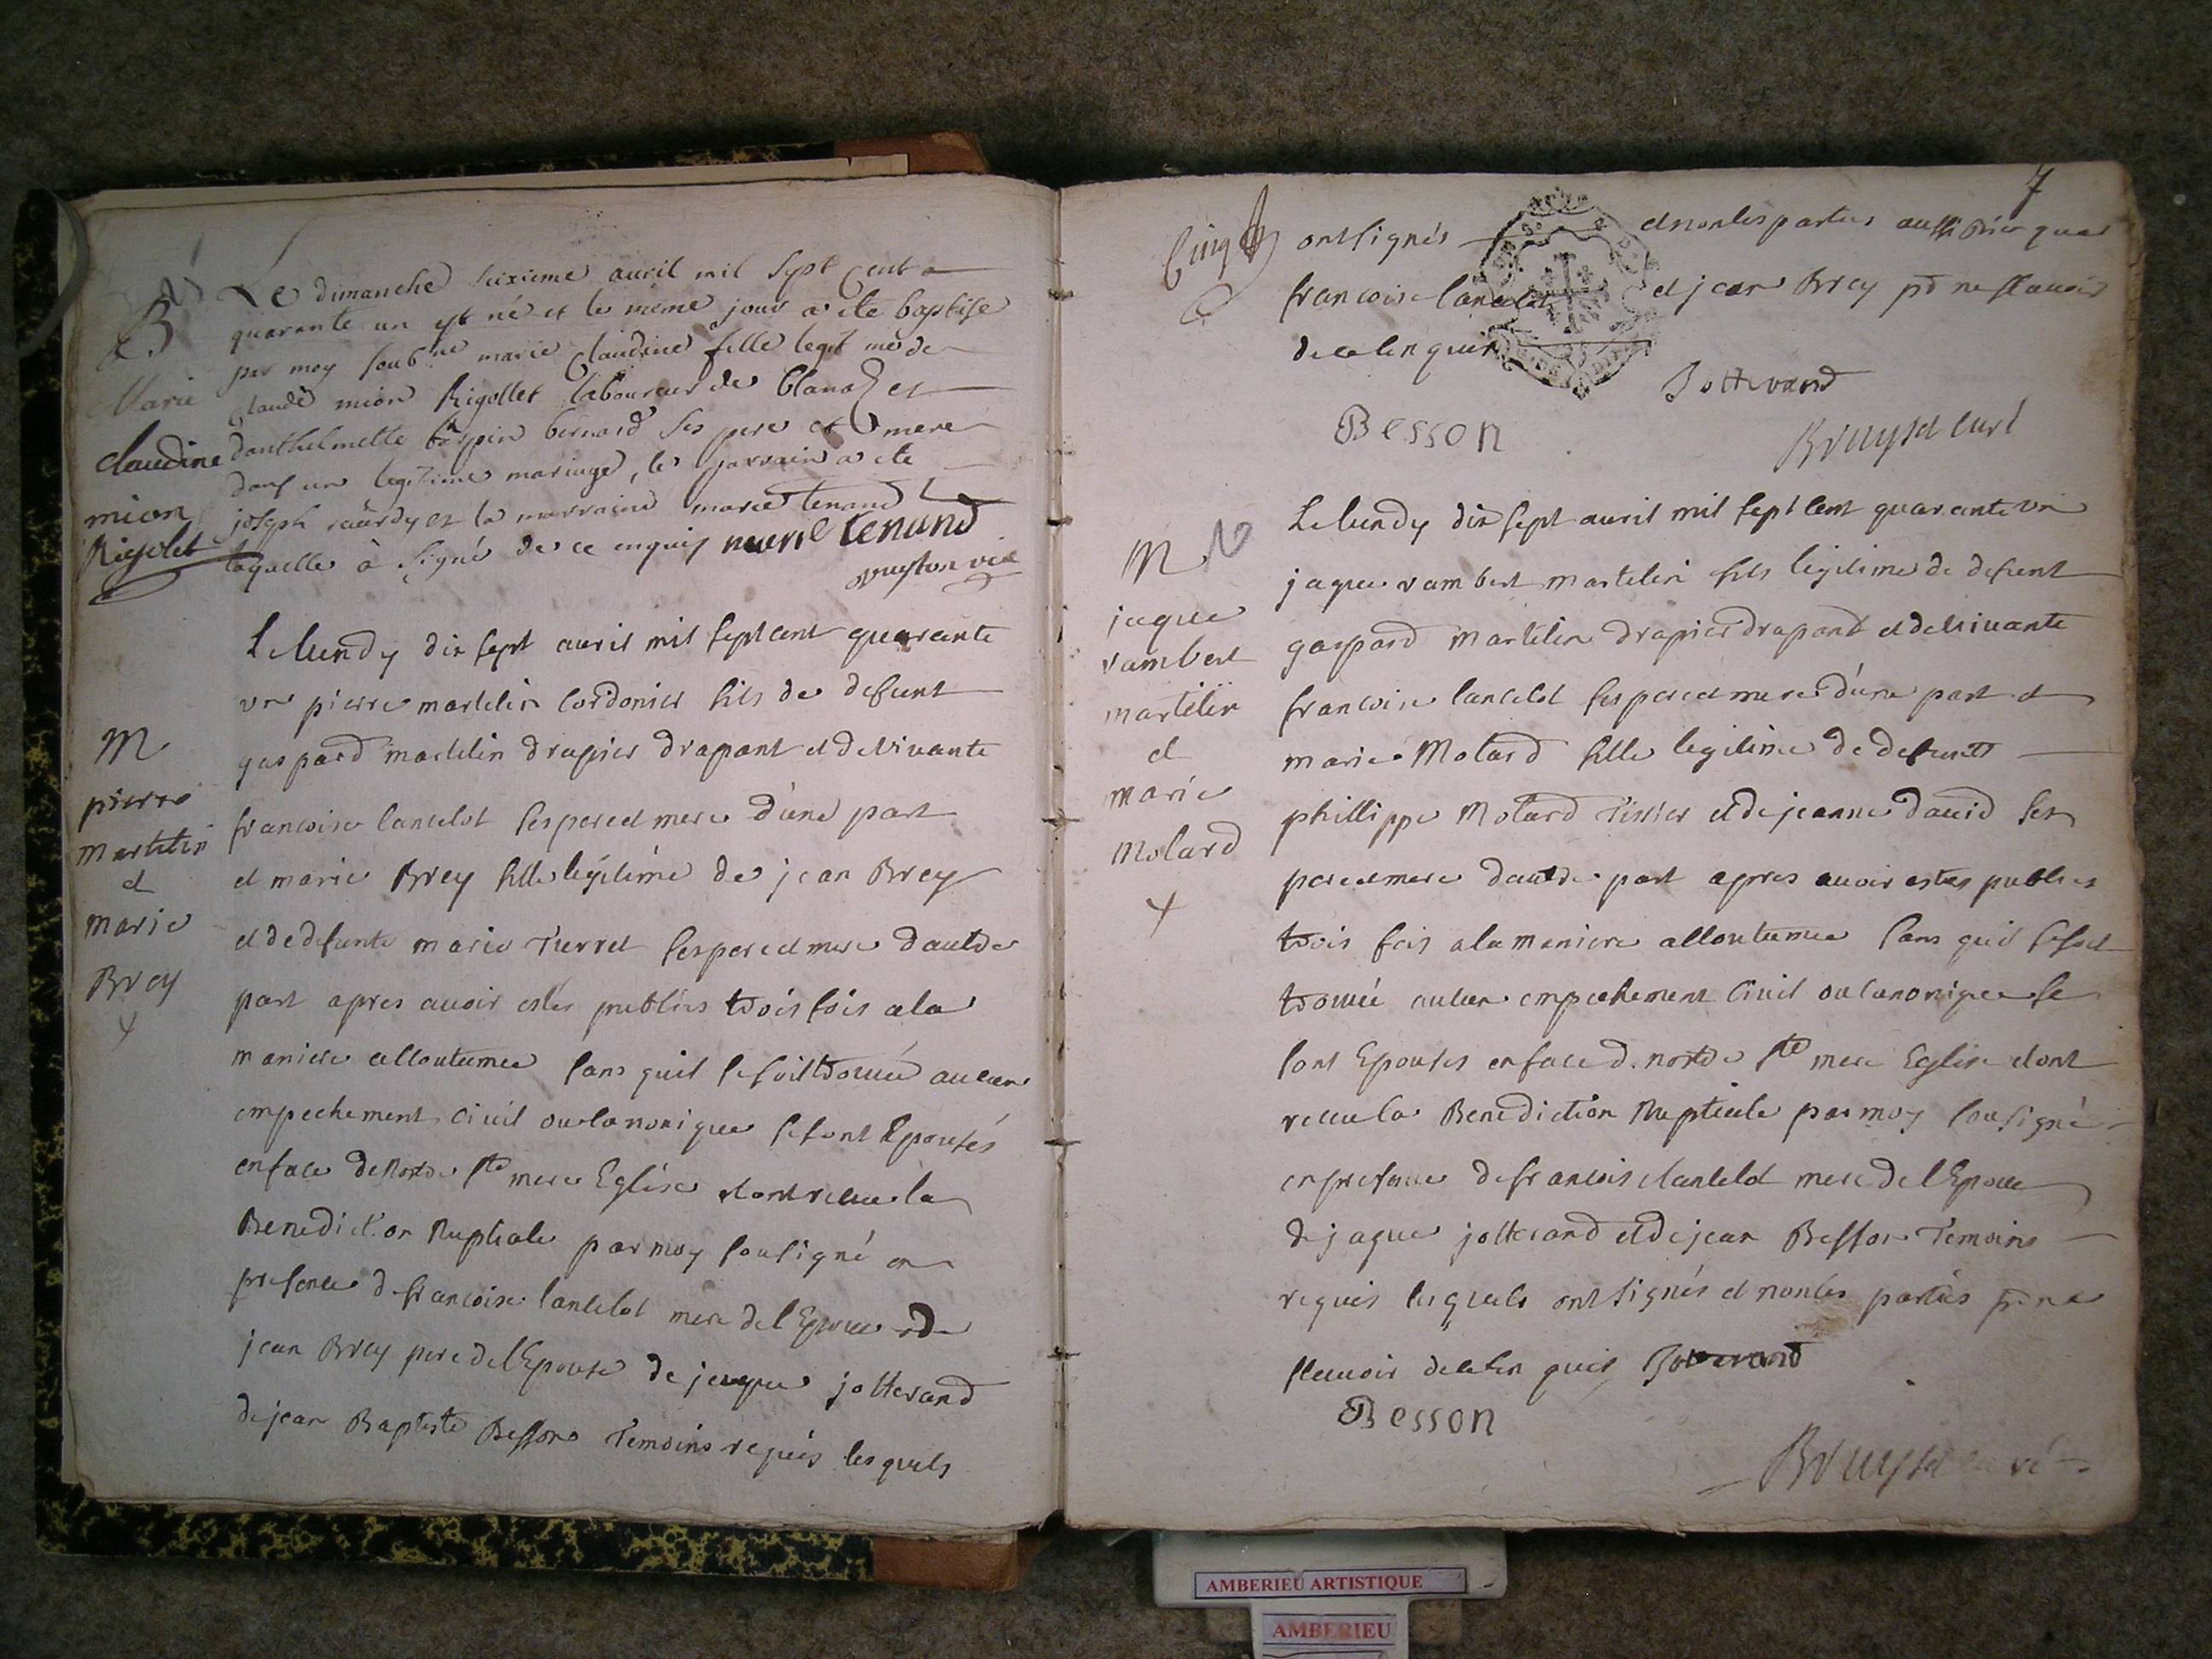 B
Marie
claudine
mion
Rigolet
Le dimanche seixieme auril mil sept cent
quarante un est né et le meme jour a ete baptise
par moy soubné marie claudine fille legitime de
claude mion Rigollet laboureur de blanaz et
danthelmette bernard ses pere et mere
dans un legitime mariage, le parrain a ete
joseph et la marraine marie tenand
laquelle à signé de ce enquis marie tenand
M
pierre
martelin
et
marie
Brey
Le lundy dix sept auril mil sept cent quarante
un pierre martelin cordonier fils de defunt
gaspard martelin drapier drapant et de vivante
francoise lancelot ses pere et mere d'une part
et marie Brey fille legitime de jean Brey
et de defunte marie Tierret ses pere et mere d'autre
part apres auoir estés publiés trois fois a la
maniere accoutumee sans quil se soit trouué aucun
empechement ciuil ou canonique se sont Epousés
en face de Notre Ste mere Eglise et ont receu la
Benediction Nuptiale par moy sousigné en
presence de francoise lancelot mere de l'Epoux de
jean Brey pere de l'Epouse de jaque jotterand
de jean Baptiste Besson Temoins requis les quels
7
Cinq
ont signés et non les parties aussi bien que
francoise lancelot et jean Brey pr ne scauoir
de ce enquis
Jotterand
Besson
Bruyset curé
M
jaque
rambert
martelin
et
marie
Molard
Le lundy dix sept auril mil sept cent quarante un
jaque rambert martelin fils legitime de defunt
gaspard martelin drapier drapant et de vivante
francoise lancelot ses pere et mere d'une part et
marie Molard fille legitime de defunt
phillippe Molard Tissier et de jeanne dauid ses
pere et mere d'autre part apres auoir estes publies
trois fois a la maniere accoutumee sans quil se soit
trouué aucun empechement ciuil ou canonique se
sont Epousés en face de notre Ste mere Eglise et ont
receu la Benediction Nuptiale par moy sousigné
en presence de francoise lancelot mere de l'Epoux
de jaque jotterand et de jean Besson Temoins
requis les quels ont signés et non les parties pr ne
scauoir de ce enquis Jotterand
Besson
Bruyset curé
AMBERIEU ARTISTIQUE
AMBERIEU